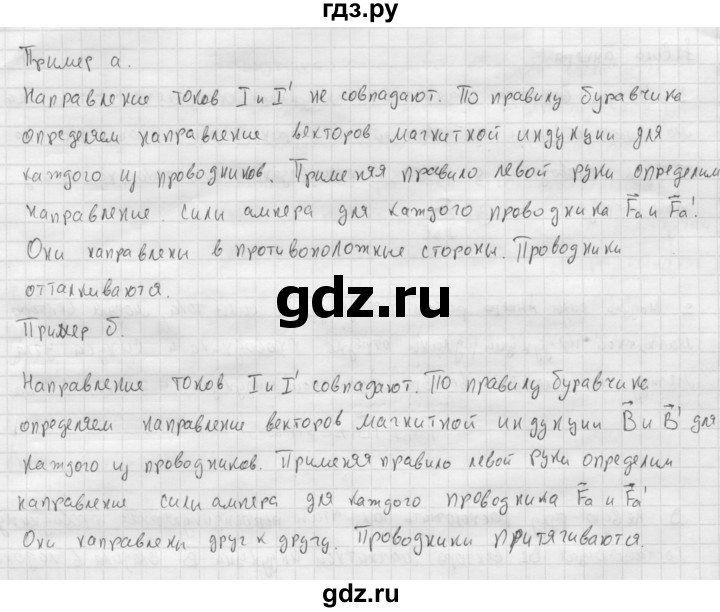 гдз.ру
Пример а.
Направление токов I и I' не совпадают. По правилу буравчика
определяем направление векторов магнитной индукции для
каждого из проводников. Применяя правило левой руки определим
направление силы ампера для каждого проводника Fₐ и Fₐ'.
Они направлены в противоположные стороны. Проводники
отталкиваются.
gdz.ru
Пример б.
Направление токов I и I' совпадают. По правилу буравчика
определяем направление векторов магнитной индукции B и B' для
каждого из проводников. Применяя правило левой руки определим
направление силы ампера для каждого проводника Fₐ и Fₐ'
Они направлены друг к другу. Проводники притягиваются.
gdz.ru